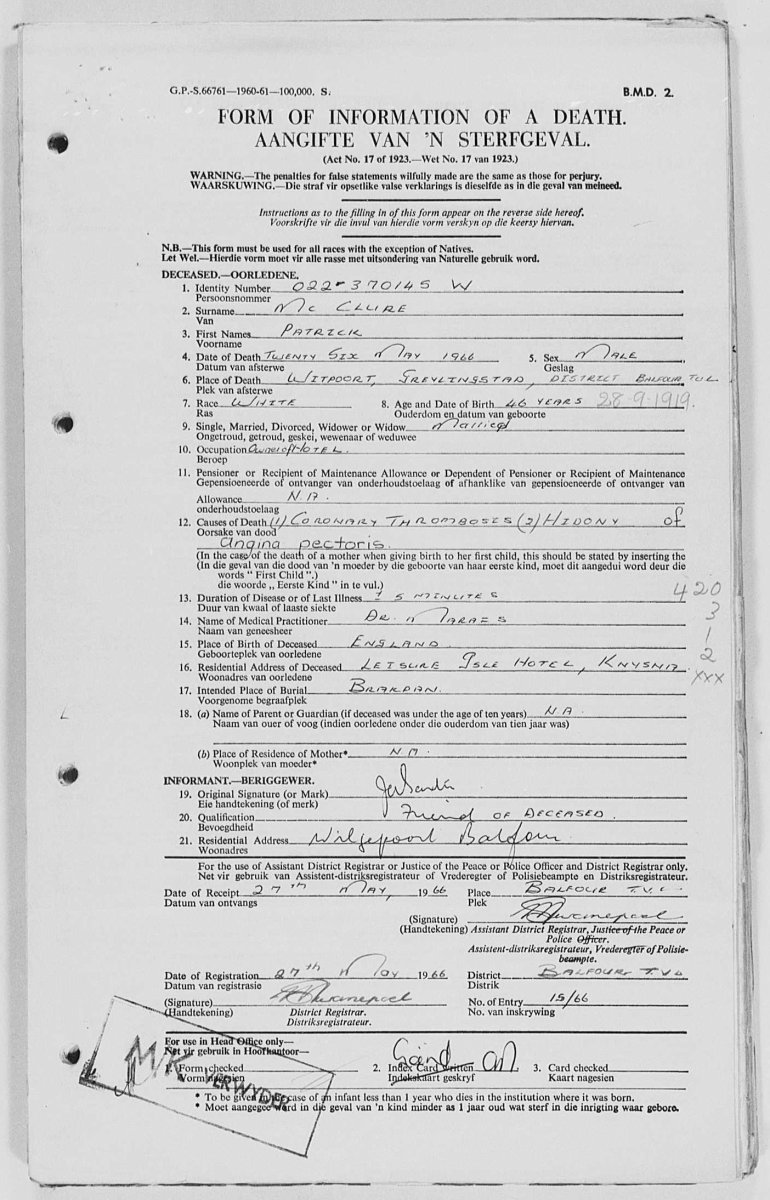 G.P.-S.66761—1960-61—100,000. S. B.M.D. 2.
FORM OF INFORMATION OF A DEATH.
AANGIFTE VAN 'N STERFGEVAL.
(Act No. 17 of 1923.—Wet No. 17 van 1923.)
WARNING.—The penalties for false statements wilfully made are the same as those for perjury.
WAARSKUWING.—Die straf vir opsetlike valse verklarings is dieselfde as in die geval van meineed.
Instructions as to the filling in of this form appear on the reverse side hereof.
Voorskrifte vir die invul van hierdie vorm verskyn op die keersy hiervan.
N.B.—This form must be used for all races with the exception of Natives.
Let Wel.—Hierdie vorm moet vir alle rasse met uitsondering van Naturelle gebruik word.
DECEASED.—OORLEDENE.
1. Identity Number 022-370145 W
Persoonsnommer
2. Surname Mc CLURE
Van
3. First Names PATRICK
Voorname
4. Date of Death TWENTY SIX MAY 1966 5. Sex MALE
Datum van afsterwe Geslag
6. Place of Death WITPOORT, GREYLINGSTAD, DISTRICT BALFOUR TVL
Plek van afsterwe
7. Race WHITE 8. Age and Date of Birth 46 YEARS 28-9-1919.
Ras Ouderdom en datum van geboorte
9. Single, Married, Divorced, Widower or Widow Married
Ongetroud, getroud, geskei, wewenaar of weduwee
10. Occupation Owner of HOTEL.
Beroep
11. Pensioner or Recipient of Maintenance Allowance or Dependent of Pensioner or Recipient of Maintenance
Gepensioeneerde of ontvanger van onderhoudstoelaag of afhanklike van gepensioeneerde of ontvanger van
Allowance N.A.
onderhoudstoelaag
12. Causes of Death (1) CORONARY THROMBOSES (2) HIDONY of
Oorsake van dood
angina pectoris.
(In the case of the death of a mother when giving birth to her first child, this should be stated by inserting the
(In die geval van die dood van 'n moeder by die geboorte van haar eerste kind, moet dit aangedui word deur die
words " First Child ".)
die woorde ,, Eerste Kind " in te vul.)
13. Duration of Disease or of Last Illness 15 MINUTES 420
Duur van kwaal of laaste siekte 3
14. Name of Medical Practitioner DR. MARAIS
Naam van geneesheer 1
15. Place of Birth of Deceased ENGLAND
Geboorteplek van oorledene 2
16. Residential Address of Deceased LEISURE ISLE HOTEL, KNYSNA. xxx
Woonadres van oorledene
17. Intended Place of Burial BRAKPAN.
Voorgenome begraafplek
18. (a) Name of Parent or Guardian (if deceased was under the age of ten years) N A.
Naam van ouer of voog (indien oorledene onder die ouderdom van tien jaar was)
(b) Place of Residence of Mother* N A.
Woonplek van moeder*
INFORMANT.—BERIGGEWER.
19. Original Signature (or Mark)
Eie handtekening (of merk)
20. Qualification Friend OF DECEASED.
Bevoegdheid
21. Residential Address Wilgepoort Balfour
Woonadres
For the use of Assistant District Registrar or Justice of the Peace or Police Officer and District Registrar only.
Net vir gebruik van Assistent-distriksregistrateur of Vrederegter of Polisiebeampte en Distriksregistrateur.
Date of Receipt 27th MAY, 1966 Place BALFOUR T.V.L.
Datum van ontvangs Plek
(Signature) Swanepoel
(Handtekening) Assistant District Registrar, Justice of the Peace or
Police Officer.
Assistent-distriksregistrateur, Vrederegter of Polisie-
beampte.
Date of Registration 27th May 1966 District BALFOUR T.V.L.
Datum van registrasie Distrik
(Signature) Swanepoel No. of Entry 15/66
(Handtekening) District Registrar. No. van inskrywing
Distriksregistrateur.
For use in Head Office only—
Net vir gebruik in Hoofkantoor—
1. Form checked 2. Index Card written 3. Card checked
Vorm nagesien Indekskaart geskryf Kaart nagesien
MK VERWYDER
* To be given in the case of an infant less than 1 year who dies in the institution where it was born.
* Moet aangegee word in die geval van 'n kind minder as 1 jaar oud wat sterf in die inrigting waar gebore.